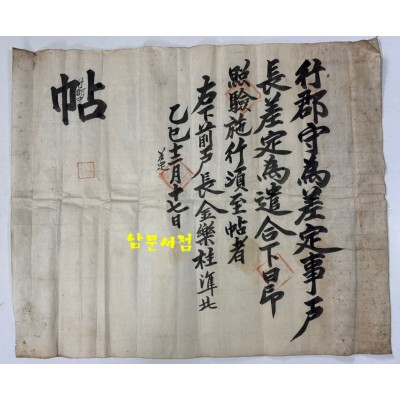 行郡守為差定事戶
長差定為遣合下日卽
照驗施行須至帖者
右下前戶長金樂桂準此
乙巳十二月十七日
差定
帖
남문서점